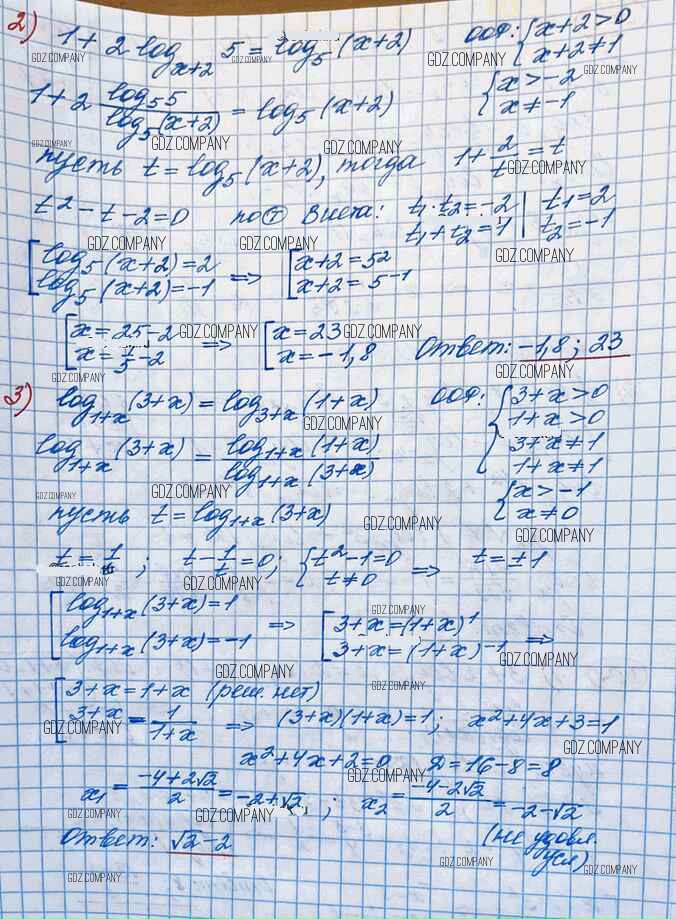 2) 1 + 2 log_{x+2} 5 = log_5 (x+2)   ООФ: { x+2>0
x+2≠1
{ x>-2
x≠-1
1 + 2 \frac{log_5 5}{log_5 (x+2)} = log_5 (x+2)
пусть t = log_5 (x+2), тогда 1 + \frac{2}{t} = t
t² - t - 2 = 0   по Т Виета: t_1 · t_2 = -2 | t_1 = 2
t_1 + t_2 = 1 | t_2 = -1
[ log_5 (x+2) = 2 ⇒ [ x+2 = 5²
log_5 (x+2) = -1   x+2 = 5^{-1}
[ x = 25-2 ⇒ [ x = 23
x = \frac{1}{5} - 2   x = -1,8   Ответ: -1,8; 23
3) log_{1+x} (3+x) = log_{3+x} (1+x)   ООФ: { 3+x>0
1+x>0
3+x≠1
1+x≠1
log_{1+x} (3+x) = \frac{log_{1+x} (1+x)}{log_{1+x} (3+x)}
{ x>-1
x≠0
пусть t = log_{1+x} (3+x)
t = \frac{1}{t} ; t - \frac{1}{t} = 0; { t² - 1 = 0 ⇒ t = ±1
t≠0
[ log_{1+x} (3+x) = 1 ⇒ [ 3+x = (1+x)^1 ⇒
log_{1+x} (3+x) = -1   3+x = (1+x)^{-1}
[ 3+x = 1+x (реш. нет)
3+x = \frac{1}{1+x} ⇒ (3+x)(1+x) = 1; x² + 4x + 3 = 1
x² + 4x + 2 = 0   D = 16 - 8 = 8
x_1 = \frac{-4+2√2}{2} = -2+√2 ; x_2 = \frac{-4-2√2}{2} = -2-√2
(не удовл.
усл)
Ответ: √2 - 2
GDZ.COMPANY